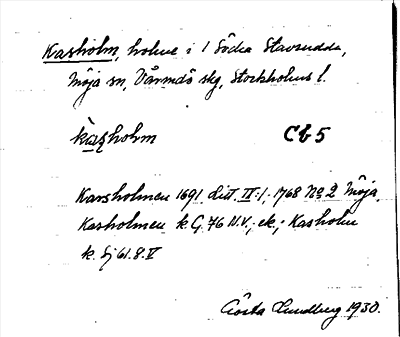 Kasholm, holme i 1 Södra Stavsudda,
Möja sn, Värmdö skg, Stockholms l.
kasholm C65
Karsholmen 1691 Litt. II:1. 1768 No 2 Möja.
Kasholmen k. G. 76 N.V.; ek.; Kasholm
k. Sj 61.8.V
Gösta Lundberg 1930.